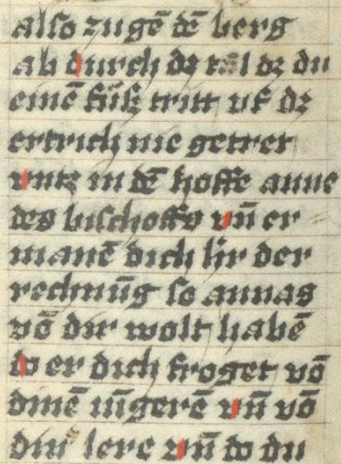 also zugē dē berg
ab durch dz tal dz du
einē fůß tritt vf dz
ertrich nie getret
vntz in dē hoffe anne
des bischoffs vn̄ er
manē dich hr̄ der
rechnūg so annas
vō dir wolt habē
do er dich froget vō
dinē iūgerē vn̄ vō
diner lere vn̄ do du